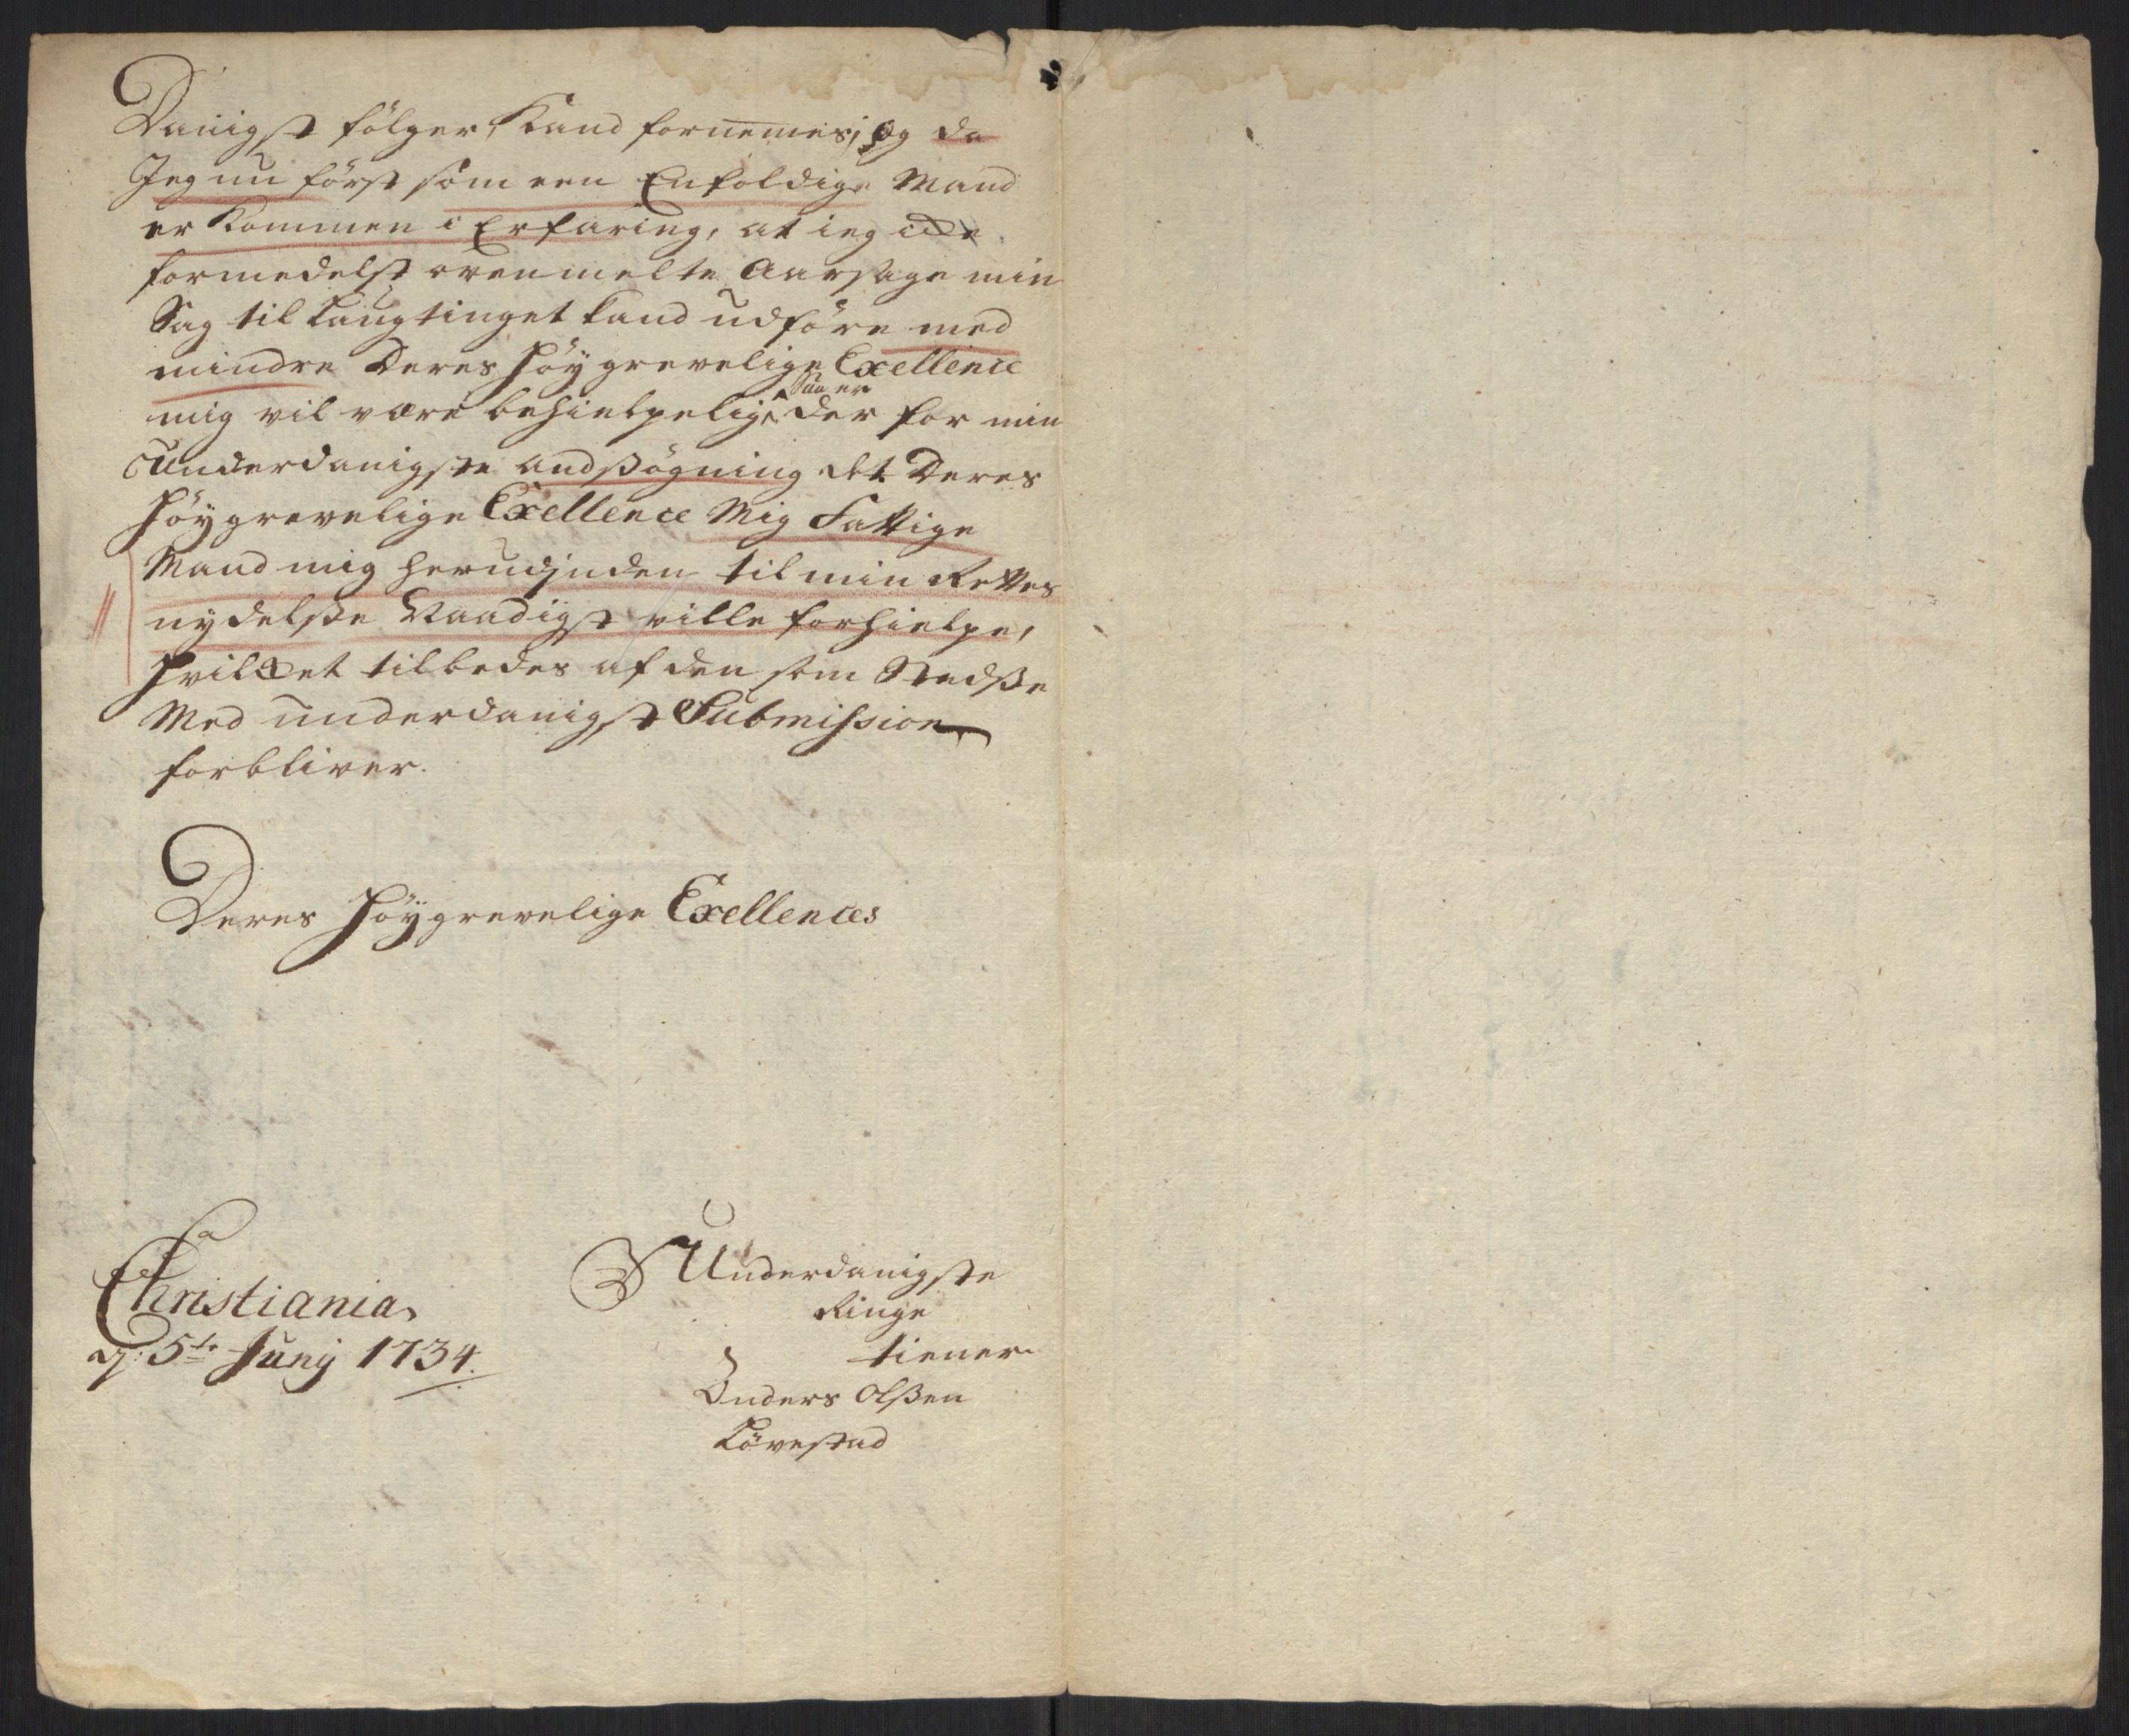 Danigst følger, Kand fornemes; og da
Jeg nu først som een Enfoldige Mand
er kommen i Erfaring, at ieg icke
formedelst ovenmelte Aarsage min
Sag til Laugtinget kand udføre med
mindre Deres Høy grevelige Exellence
mig vil være behielpelig, Saa er der for min
Underdanigste andsøgning at Deres
Høygrevelige Exellence Mig Fattige
Mand mig herudjnden til min Rettes
nydelsße Naadigst ville forhielpe,
hvilket tilbedes af den som Stedsße
Med underdanigst Submission
forbliver.
Deres Høygrevelige Exellences
Christiania
d: 5te Junij 1734.
Underdanigste
Ringe
tiener
Anders Olsßen
Løvestad